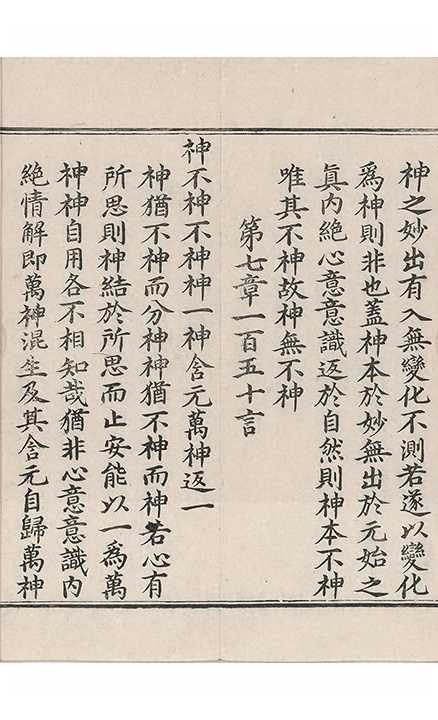 神之妙出有入無變化不測若遂以變化
爲神則非也蓋神本於妙無出於元始之
眞内絶心意意識返於自然則神本不神
唯其不神故神無不神
第七章一百五十言
神不神不神神一神含元萬神返一
神猶不神而分神神猶不神而神若心有
所思則神結於所思而止安能以一爲萬
神神自用各不相知哉猶非心意意識内
絶情解即萬神混生及其含元自歸萬神